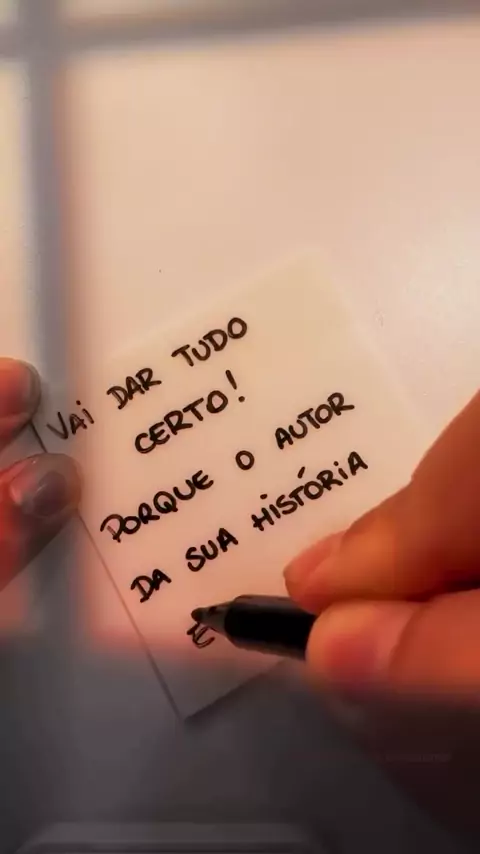 VAI DAR TUDO
CERTO!
PORQUE O AUTOR
DA SUA HISTÓRIA
É